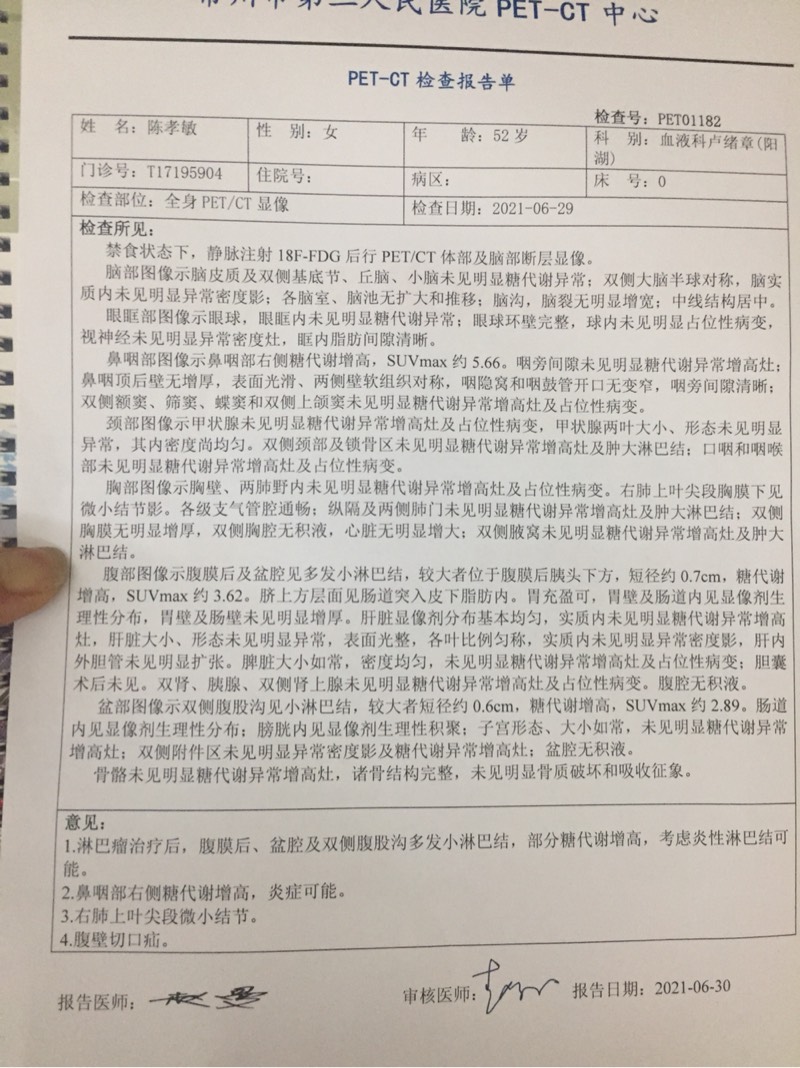 常州市第二人民医院 PET-CT 中心
PET-CT 检查报告单
检查号：PET01182
姓 名：陈孝敏 性 别：女 年 龄：52 岁 科 别：血液科卢绪章(阳湖)
门诊号：T17195904 住院号： 病区： 床 号：0
检查部位：全身 PET/CT 显像 检查日期：2021-06-29
检查所见：
禁食状态下，静脉注射 18F-FDG 后行 PET/CT 体部及脑部断层显像。
脑部图像示脑皮质及双侧基底节、丘脑、小脑未见明显糖代谢异常；双侧大脑半球对称，脑实
质内未见明显异常密度影；各脑室、脑池无扩大和推移；脑沟，脑裂无明显增宽；中线结构居中。
眼眶部图像示眼球，眼眶内未见明显糖代谢异常；眼球环壁完整，球内未见明显占位性病变，
视神经未见明显异常密度灶，眶内脂肪间隙清晰。
鼻咽部图像示鼻咽部右侧糖代谢增高，SUVmax 约 5.66。咽旁间隙未见明显糖代谢异常增高灶；
鼻咽顶后壁无增厚，表面光滑、两侧壁软组织对称，咽隐窝和咽鼓管开口无变窄，咽旁间隙清晰；
双侧额窦、筛窦、蝶窦和双侧上颌窦未见明显糖代谢异常增高灶及占位性病变。
颈部图像示甲状腺未见明显糖代谢异常增高灶及占位性病变，甲状腺两叶大小、形态未见明显
异常，其内密度尚均匀。双侧颈部及锁骨区未见明显糖代谢异常增高灶及肿大淋巴结；口咽和咽喉
部未见明显糖代谢异常增高灶及占位性病变。
胸部图像示胸壁、两肺野内未见明显糖代谢异常增高灶及占位性病变。右肺上叶尖段胸膜下见
微小结节影。各级支气管腔通畅；纵隔及两侧肺门未见明显糖代谢异常增高灶及肿大淋巴结；双侧
胸膜无明显增厚，双侧胸腔无积液，心脏无明显增大；双侧腋窝未见明显糖代谢异常增高灶及肿大
淋巴结。
腹部图像示腹膜后及盆腔见多发小淋巴结，较大者位于腹膜后胰头下方，短径约 0.7cm，糖代谢
增高，SUVmax 约 3.62。脐上方层面见肠道突入皮下脂肪内。胃充盈可，胃壁及肠道内见显像剂生
理性分布，胃壁及肠壁未见明显增厚。肝脏显像剂分布基本均匀，实质内未见明显糖代谢异常增高
灶，肝脏大小、形态未见明显异常，表面光整，各叶比例匀称，实质内未见明显异常密度影，肝内
外胆管未见明显扩张。脾脏大小如常，密度均匀，未见明显糖代谢异常增高灶及占位性病变；胆囊
术后未见。双肾、胰腺、双侧肾上腺未见明显糖代谢异常增高灶及占位性病变。腹腔无积液。
盆部图像示双侧腹股沟见小淋巴结，较大者短径约 0.6cm，糖代谢增高，SUVmax 约 2.89。肠道
内见显像剂生理性分布；膀胱内见显像剂生理性积聚；子宫形态、大小如常，未见明显糖代谢异常
增高灶；双侧附件区未见明显异常密度影及糖代谢异常增高灶；盆腔无积液。
骨骼未见明显糖代谢异常增高灶，诸骨结构完整，未见明显骨质破坏和吸收征象。
意见：
1.淋巴瘤治疗后，腹膜后、盆腔及双侧腹股沟多发小淋巴结，部分糖代谢增高，考虑炎性淋巴结可
能。
2.鼻咽部右侧糖代谢增高，炎症可能。
3.右肺上叶尖段微小结节。
4.腹壁切口疝。
报告医师： 审核医师： 报告日期：2021-06-30